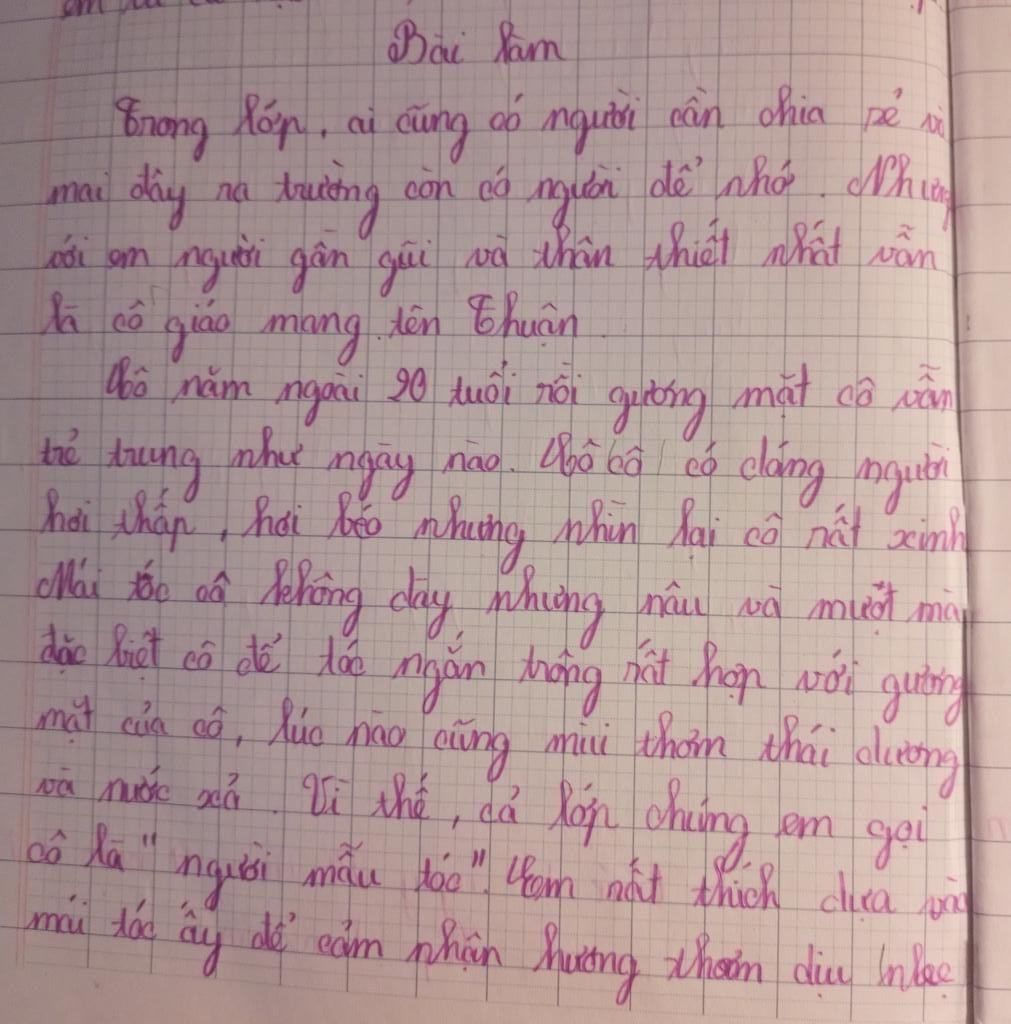 Bài làm
Trong lớp, ai cũng có người cần chia sẻ và
mai đây ra trường còn có người để nhớ. Nhưng
với em người gần gũi và thân thiết nhất vẫn
là cô giáo mang tên Thuận.
Cô năm ngoài 20 tuổi rồi gương mặt cô vẫn
trẻ trung như ngày nào. Cô cô có dáng người
hơi thấp, hơi béo nhưng nhìn lại cô rất xinh
Mái tóc cô không dày nhưng nâu và mượt mà
đặc biệt cô để tóc ngắn trông rất hợp với gương
mặt của cô, lúc nào cũng mùi thơm thái dương
và nước xả. Vì thế, cả lớp chúng em gọi
cô là "người mẫu tóc". Em rất thích dựa vào
mái tóc ấy để cảm nhận hương thơm dịu